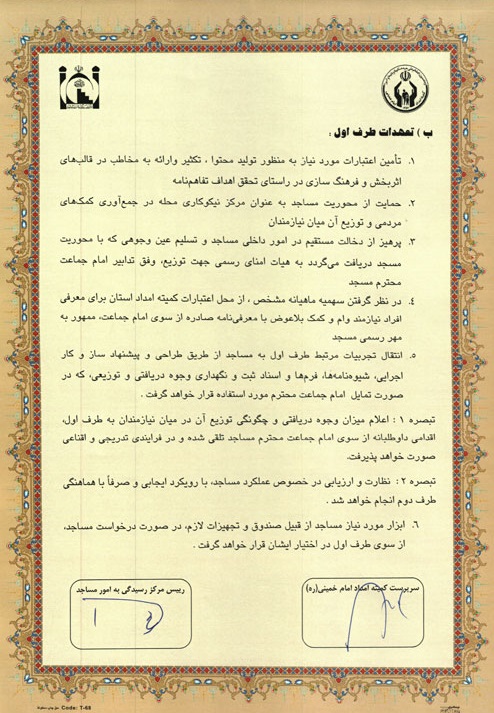 ب ) تعهدات طرف اول :
۱. تأمین اعتبارات مورد نیاز به منظور تولید محتوا ، تکثیر وارائه به مخاطب در قالب‌های
اثربخش و فرهنگ سازی در راستای تحقق اهداف تفاهم‌نامه
۲. حمایت از محوریت مساجد به عنوان مرکز نیکوکاری محله در جمع‌آوری کمک‌های
مردمی و توزیع آن میان نیازمندان
۳. پرهیز از دخالت مستقیم در امور داخلی مساجد و تسلیم عین وجوهی که با محوریت
مسجد دریافت می‌گردد به هیات امنای رسمی جهت توزیع، وفق تدابیر امام جماعت
محترم مسجد
۴. در نظر گرفتن سهمیه ماهیانه مشخص ، از محل اعتبارات کمیته امداد استان برای معرفی
افراد نیازمند وام و کمک بلاعوض با معرفی‌نامه صادره از سوی امام جماعت، ممهور به
مهر رسمی مسجد
۵. انتقال تجربیات مرتبط طرف اول به مساجد از طریق طراحی و پیشنهاد ساز و کار
اجرایی، شیوه‌نامه‌ها، فرم‌ها و اسناد ثبت و نگهداری وجوه دریافتی و توزیعی، که در
صورت تمایل امام جماعت محترم مورد استفاده قرار خواهد گرفت .
تبصره ۱ : اعلام میزان وجوه دریافتی و چگونگی توزیع آن در میان نیازمندان به طرف اول،
اقدامی داوطلبانه از سوی امام جماعت محترم مساجد تلقی شده و در فرایندی تدریجی و اقناعی
صورت خواهد پذیرفت.
تبصره ۲ : نظارت و ارزیابی در خصوص عملکرد مساجد، با رویکرد ایجابی و صرفاً با هماهنگی
طرف دوم انجام خواهد شد .
۶. ابزار مورد نیاز مساجد از قبیل صندوق و تجهیزات لازم، در صورت درخواست مساجد،
از سوی طرف اول در اختیار ایشان قرار خواهد گرفت .
سرپرست کمیته امداد امام خمینی(ره)
رییس مرکز رسیدگی به امور مساجد
Code: T-68